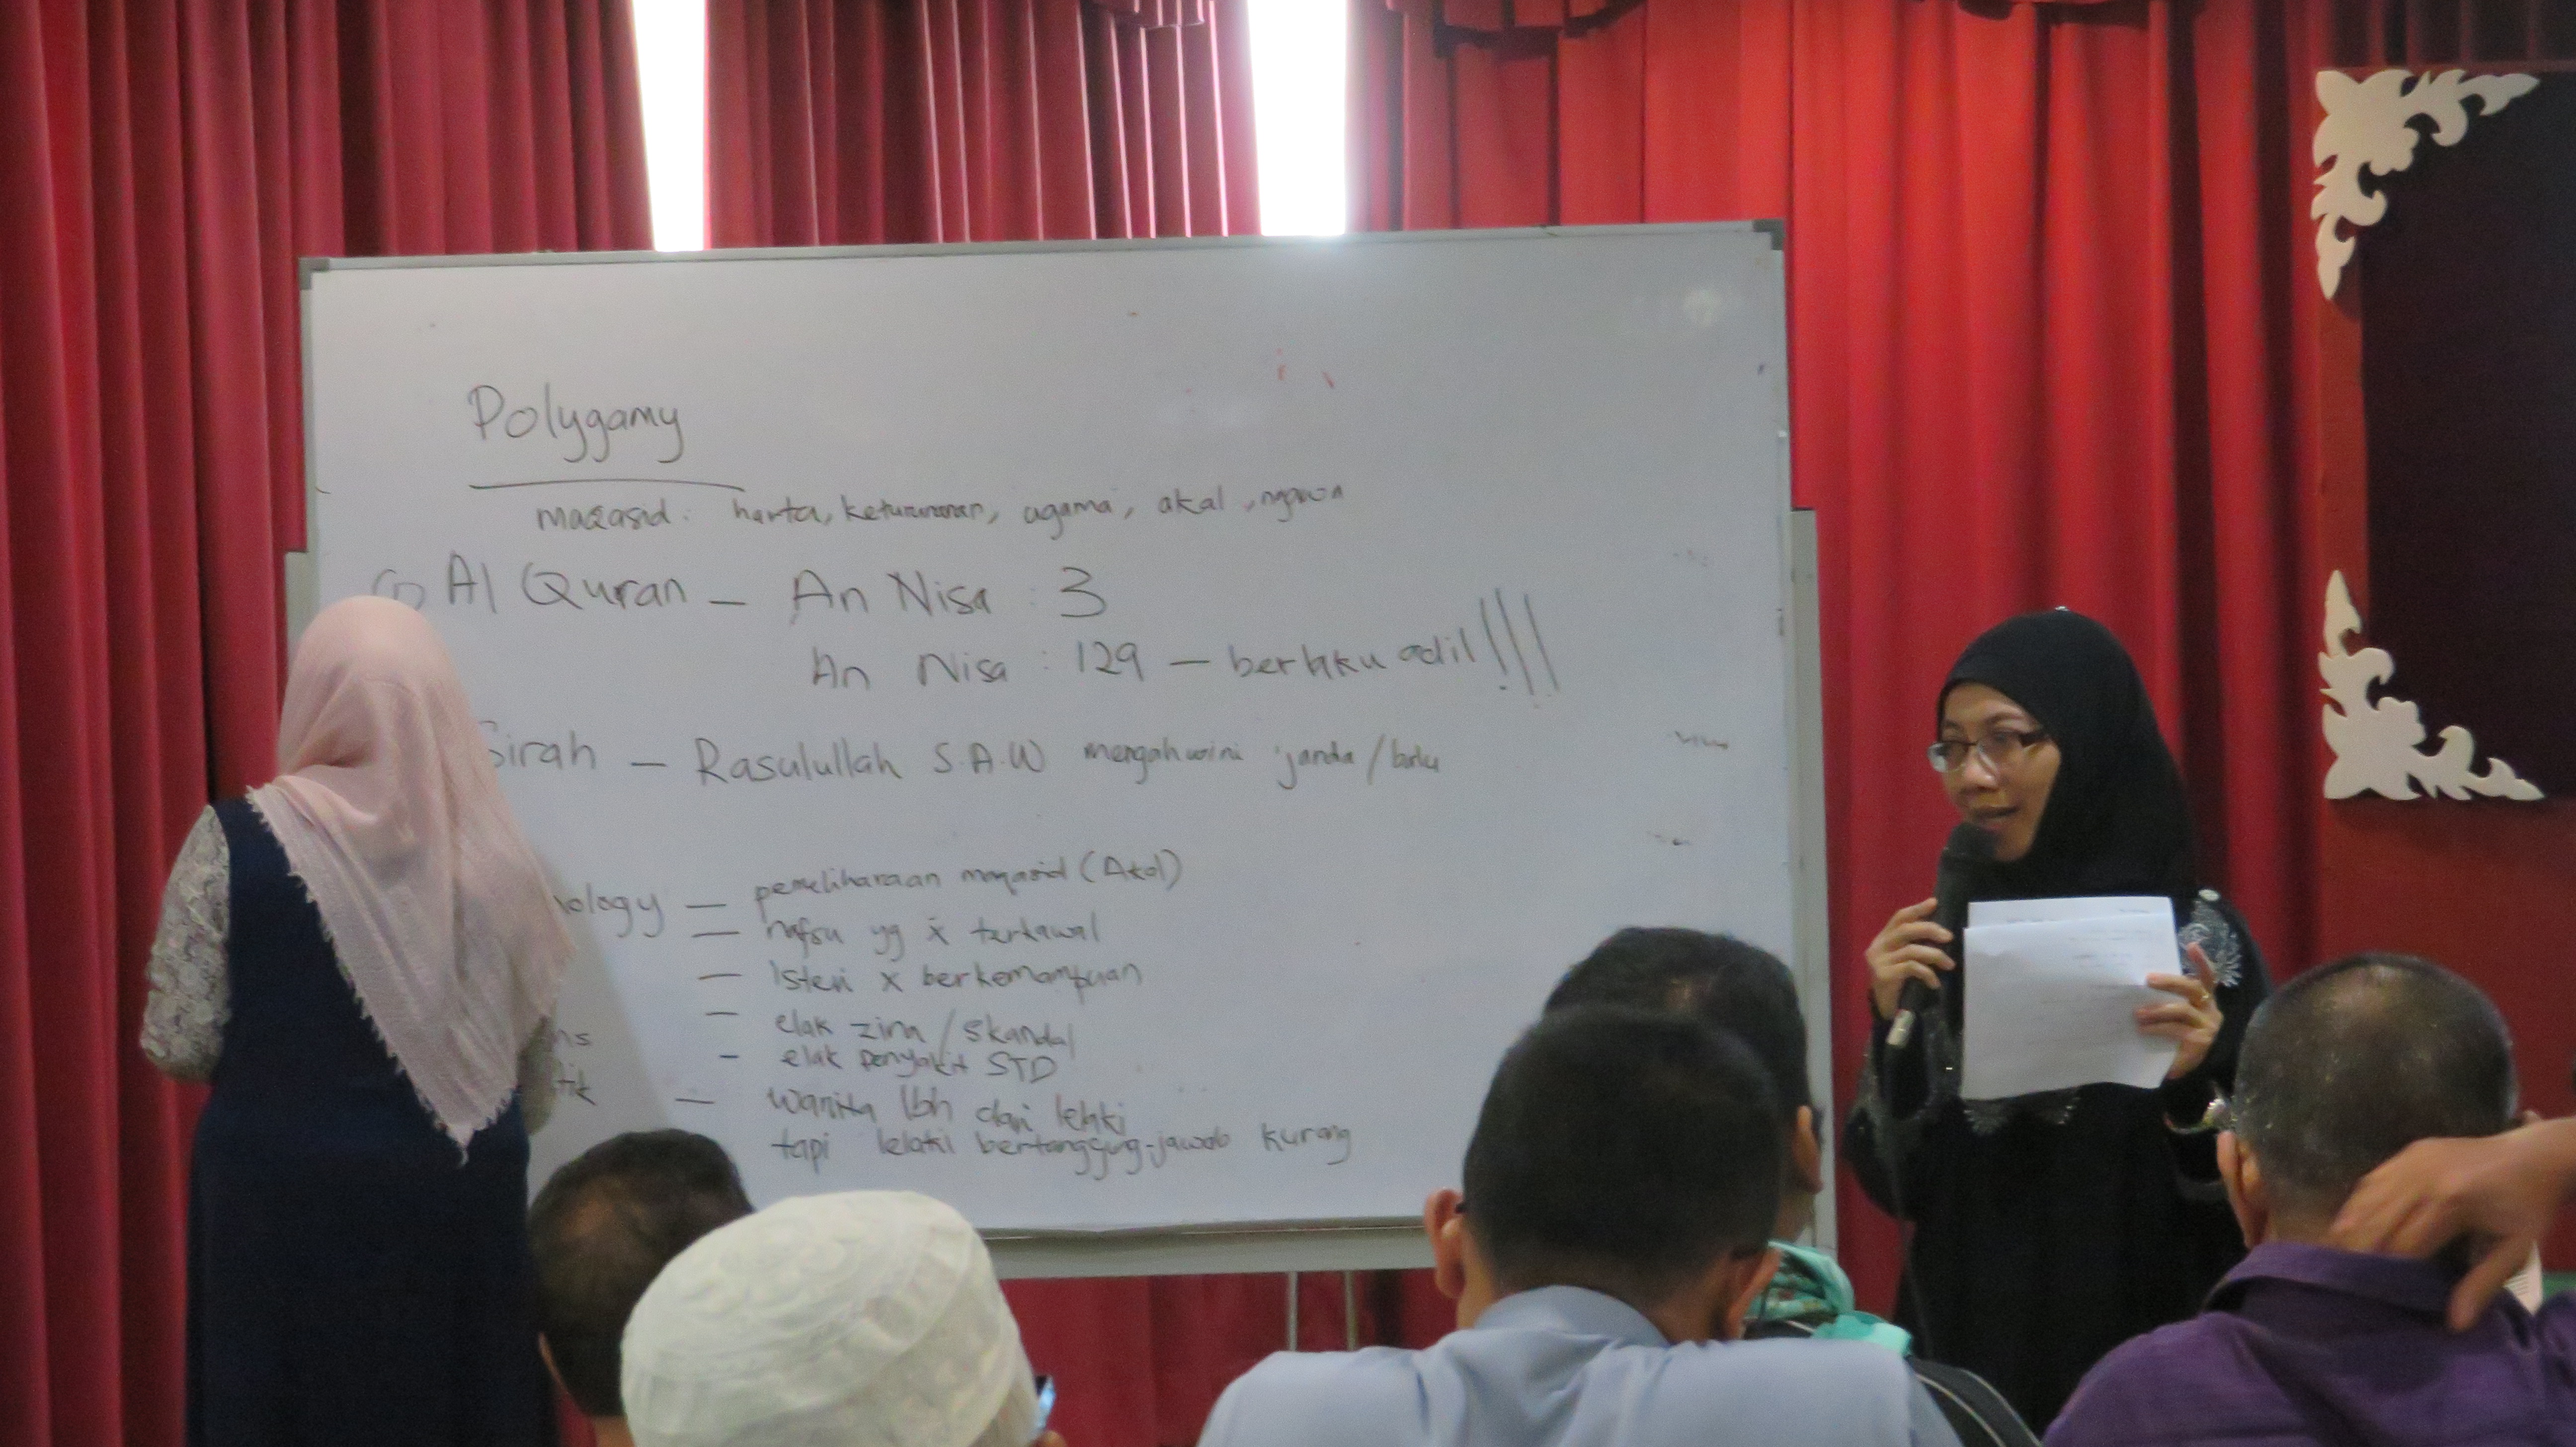 Polygamy
maqasid: harta, keturunan, agama, akal, nyawa
(1) Al Quran - An Nisa : 3
An Nisa : 129 - berlaku adil!!!
Sirah - Rasulullah S.A.W mengahwini janda/balu
ology - pemeliharaan maqasid (Akal)
- nafsu yg x terkawal
- Isteri x berkemampuan
- elak zina / skandal
ns - elak penyakit STD
tik - wanita lbh dari lelaki
tapi lelaki bertanggung-jawab kurang